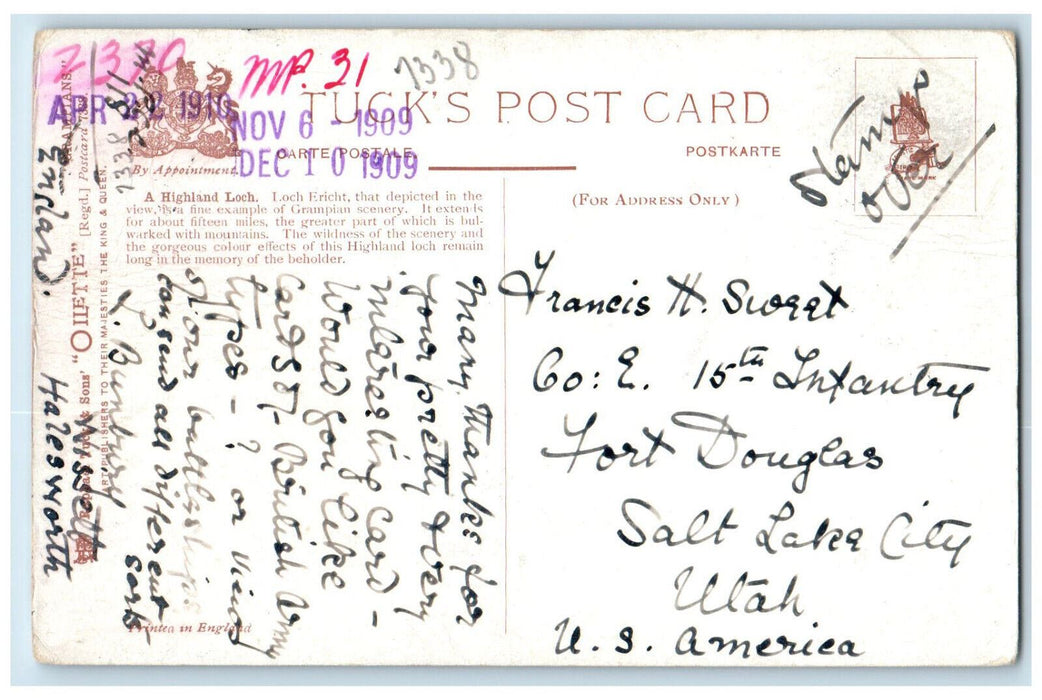 2370
MP. 31
7338
APR 22 1910
NOV 6 - 1909
DEC 10 1909
TUCK'S POST CARD
CARTE POSTALE
POSTKARTE
By Appointment.
(FOR ADDRESS ONLY)
Stamp
over
A Highland Loch. Loch Ericht, that depicted in the
view, is a fine example of Grampian scenery. It extends
for about fifteen miles, the greater part of which is bul-
warked with mountains. The wildness of the scenery and
the gorgeous colour effects of this Highland loch remain
long in the memory of the beholder.
Many thanks for
your pretty & very
interesting card -
Would you like
Cards of - British Army
types - ? or view
s? or battleships
I can send all different
sorts
Y. Bunbury
Wissett
Halesworth
England.
7338
Raphael Tuck & Sons' "OILETTE" [Regd.] Postcard
ART PUBLISHERS TO THEIR MAJESTIES THE KING & QUEEN.
Printed in England
Francis H. Sweet
Co: E. 15th Infantry
Fort Douglas
Salt Lake City
Utah
U. S. America